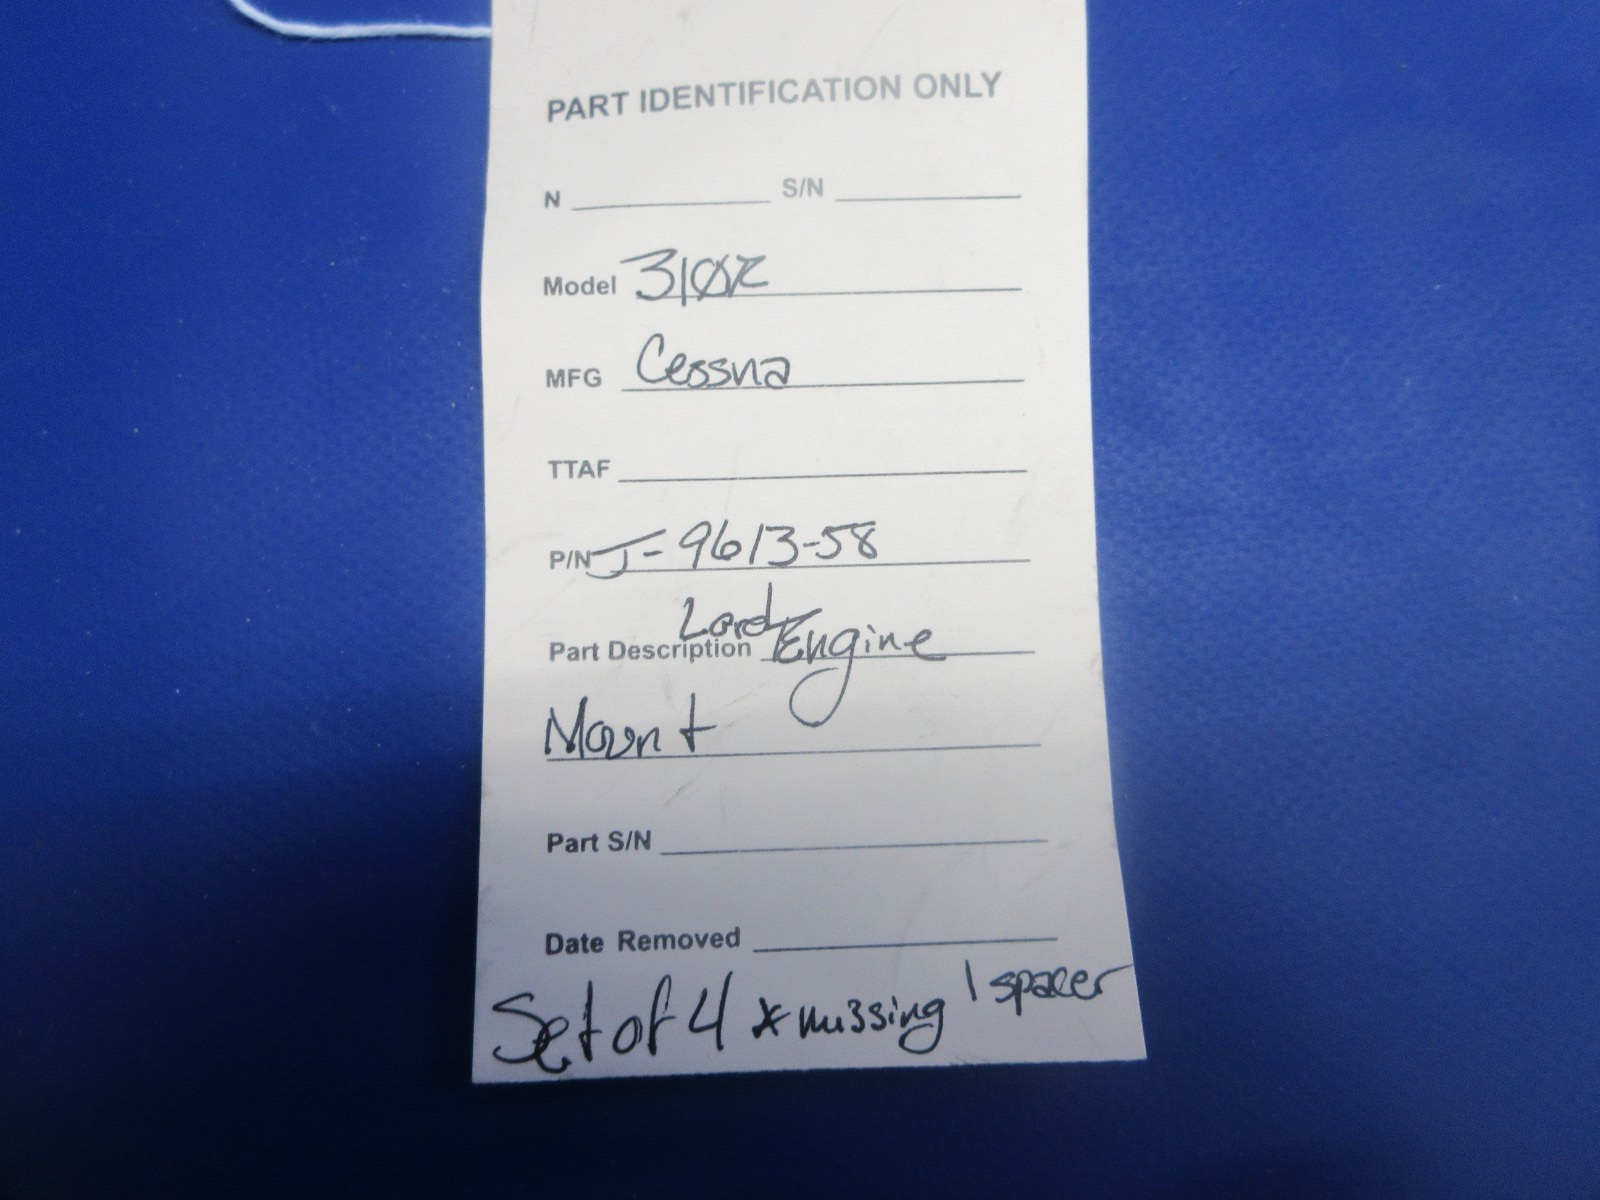 PART IDENTIFICATION ONLY
N S/N
Model 310R
MFG Cessna
TTAF
P/N J-9613-58
Part Description Lord Engine
Mount
Part S/N
Date Removed
Set of 4 * missing 1 spacer